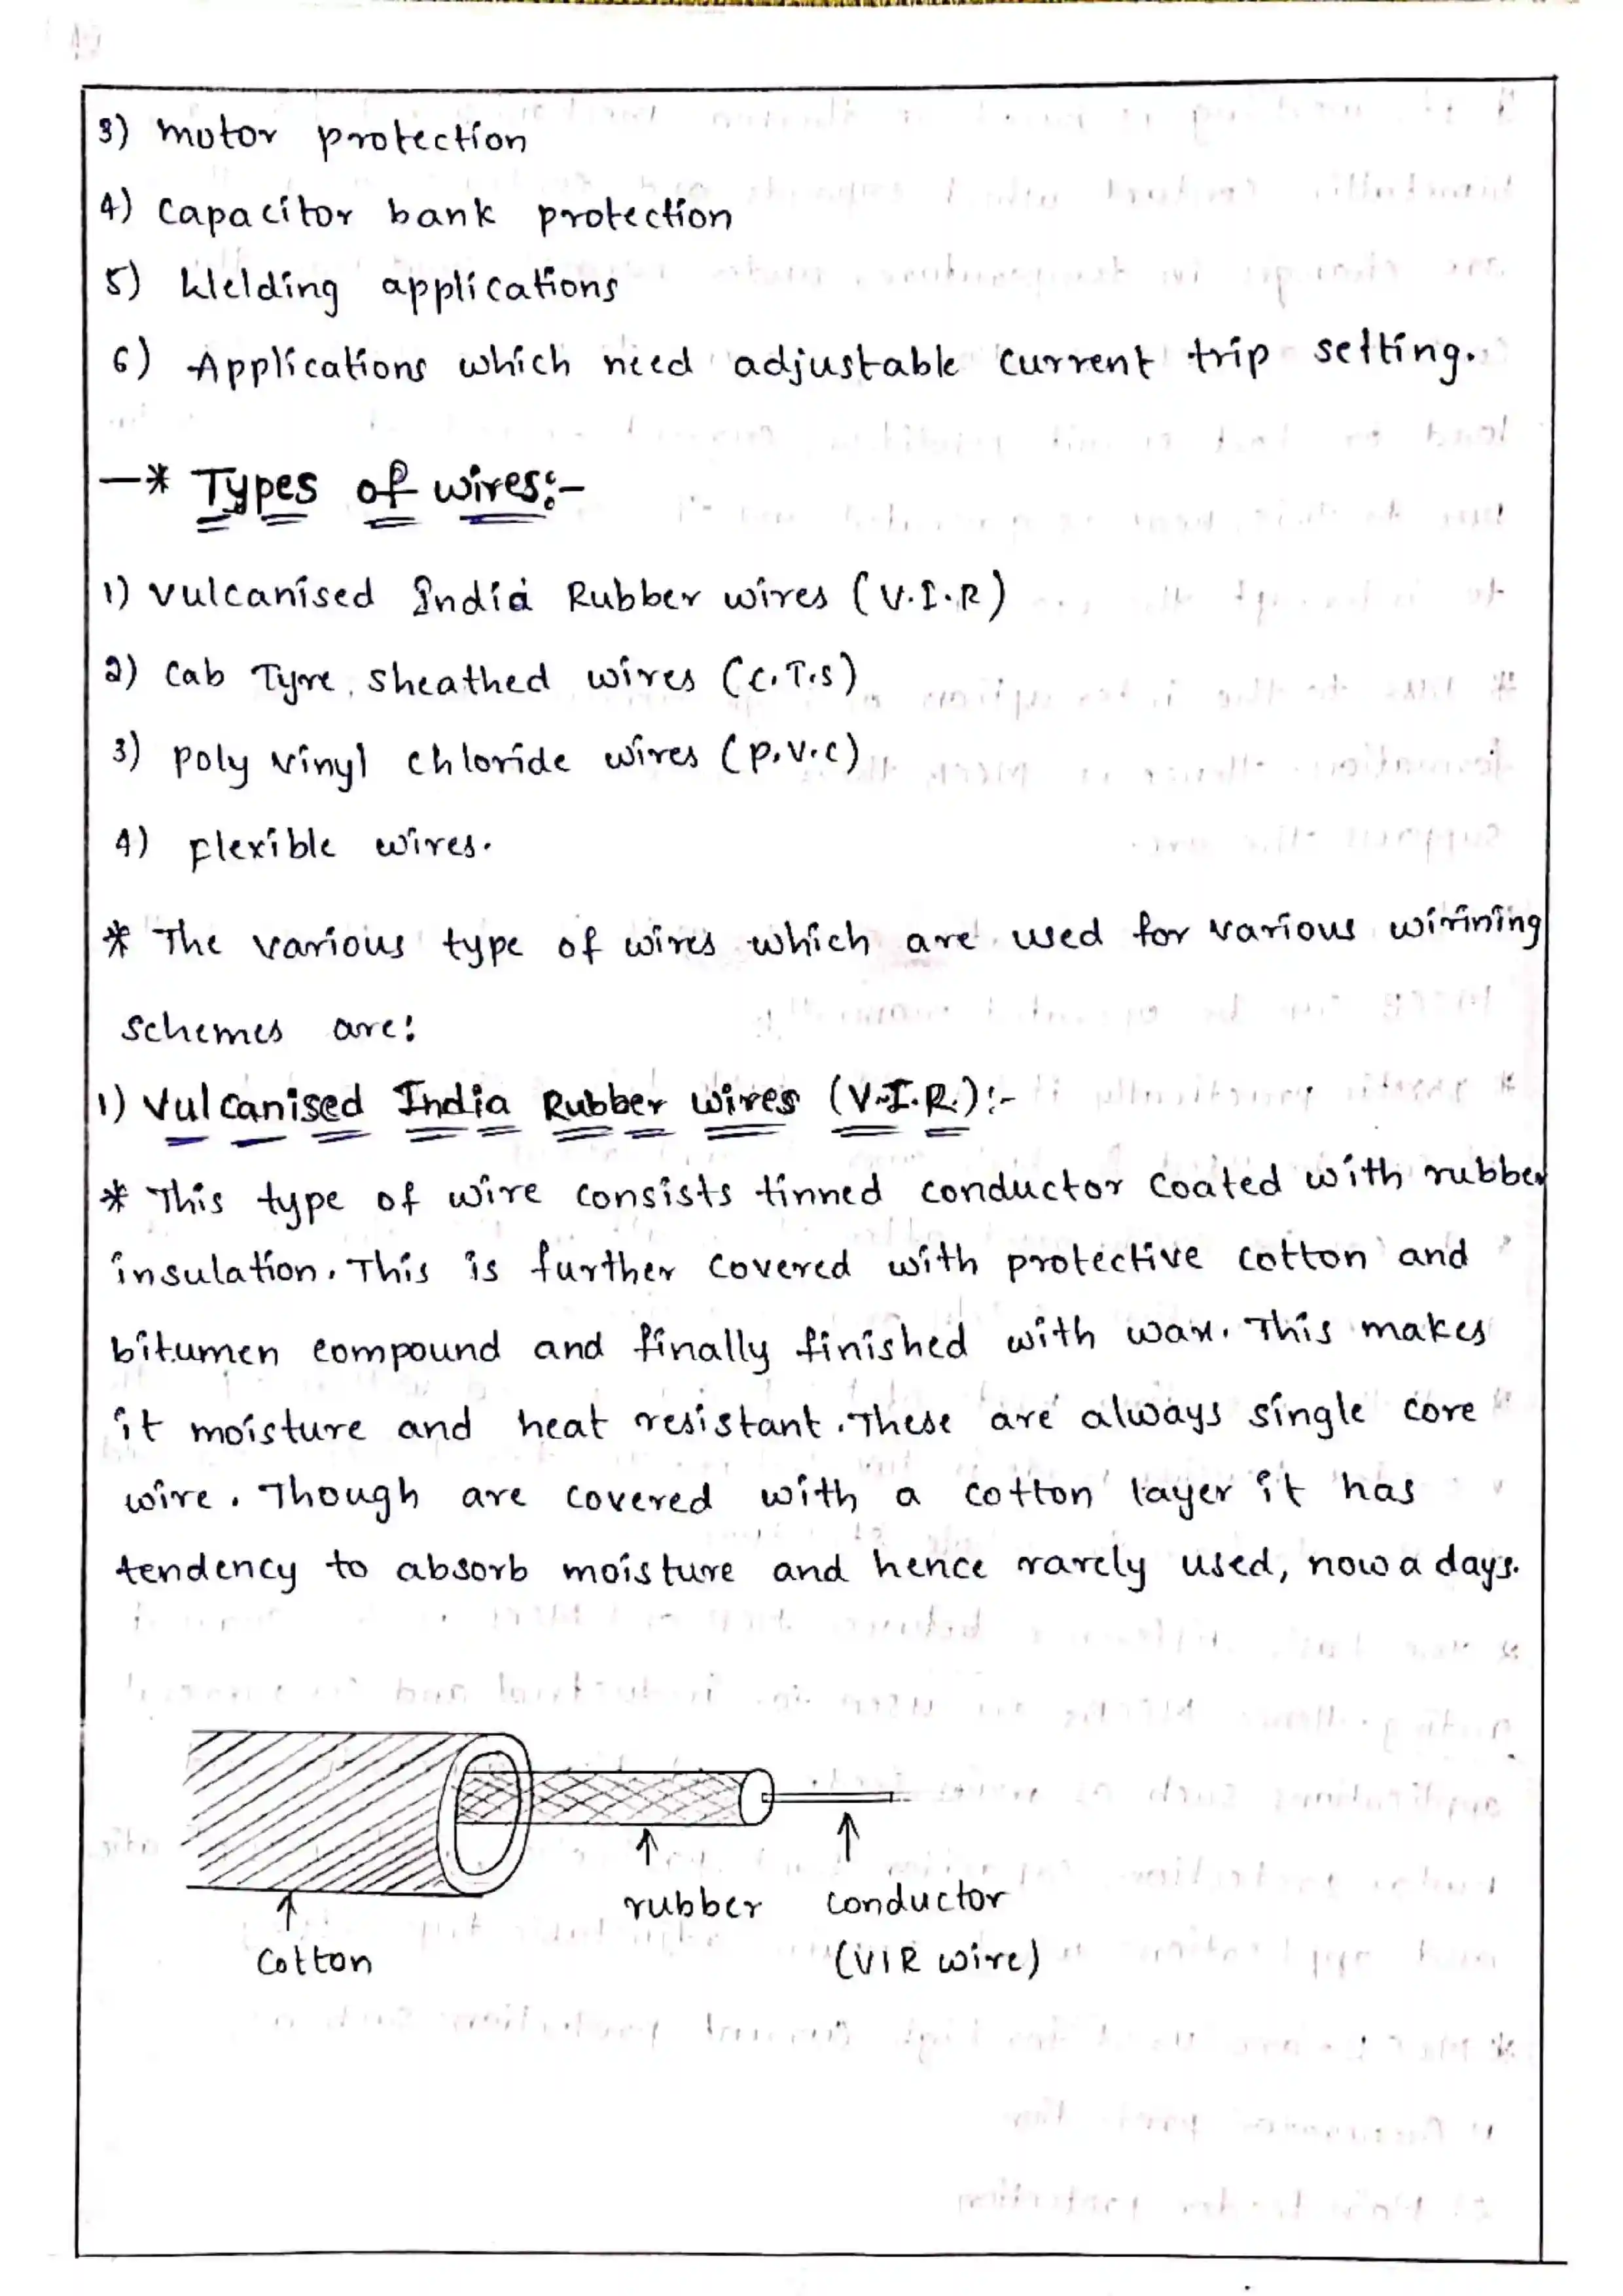 3) Motor protection
4) Capacitor bank protection
5) Welding applications
6) Applications which need adjustable current trip setting.
—* Types of wires:-
1) Vulcanised India Rubber wires (V.I.R)
2) Cab Tyre sheathed wires (C.T.S)
3) poly vinyl chloride wires (P.V.C)
4) Flexible wires.
* The various type of wires which are used for various wirining
schemes are:
1) Vulcanised India Rubber wires (V.I.R.):-
* This type of wire consists tinned conductor coated with rubber
insulation. This is further covered with protective cotton and
bitumen compound and finally finished with wax. This makes
it moisture and heat resistant. These are always single core
wire. Though are covered with a cotton layer it has
tendency to absorb moisture and hence rarely used, now a days.
rubber conductor
Cotton (VIR wire)